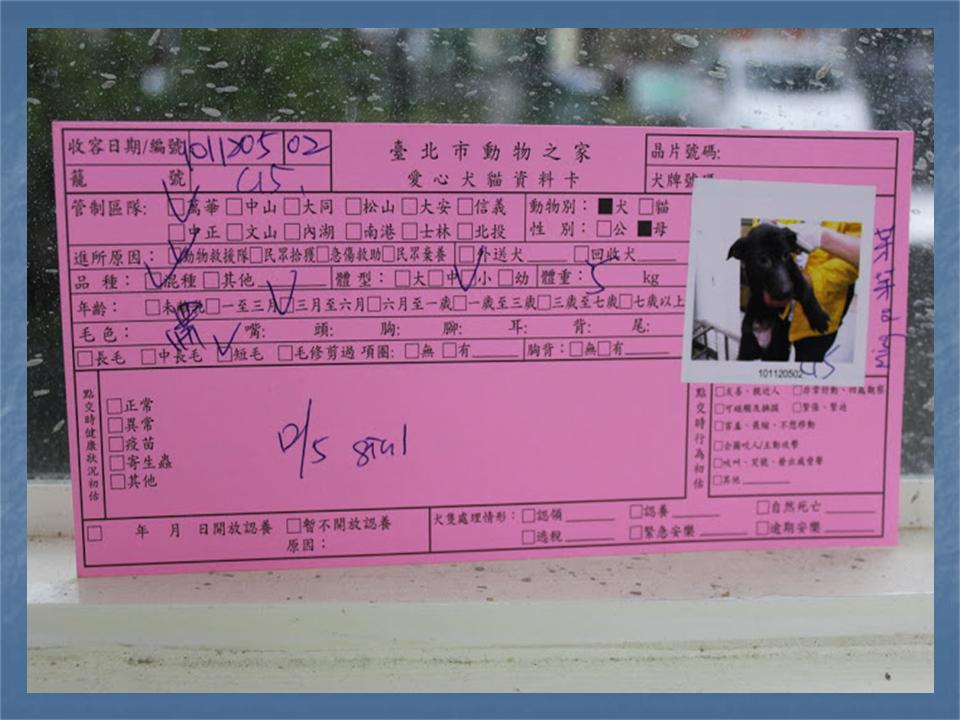 收容日期/編號 1011205 02
臺北市動物之家
晶片號碼:
籠 號 G15
愛心犬貓資料卡
犬牌號碼
管制區隊: □萬華 □中山 □大同 □松山 □大安 □信義
動物別: ■犬 □貓
□中正 □文山 □內湖 □南港 □士林 □北投
性 別: □公 ■母
進所原因: □動物救援隊 □民眾拾獲 □急傷救助 □民眾棄養 □外送犬 □回收犬
品 種: □混種 □其他 體 型: □大 □中 □小 □幼 體重: 5 kg
年齡: □未 □一至三月 □三月至六月 □六月至一歲 □一歲至三歲 □三歲至七歲 □七歲以上
毛色: 黑 嘴: 頭: 胸: 腳: 耳: 背: 尾:
□長毛 □中長毛 □短毛 □毛修剪過 項圈: □無 □有 胸背: □無 □有
101120502
G15
點交時健康狀況初估
□正常
□異常
□疫苗
□寄生蟲
□其他
點交時行為初估
□友善、親近人 □非常好動、四處觀察
□可碰觸及擁抱 □緊張、緊迫
□害羞、畏縮、不想移動
□企圖咬人/主動攻擊
□吠叫、哭號、發出威脅聲
□其他
□ 年 月 日開放認養 □暫不開放認養
原因:
犬隻處理情形: □認領 □認養 □自然死亡
□逃脫 □緊急安樂 □逾期安樂